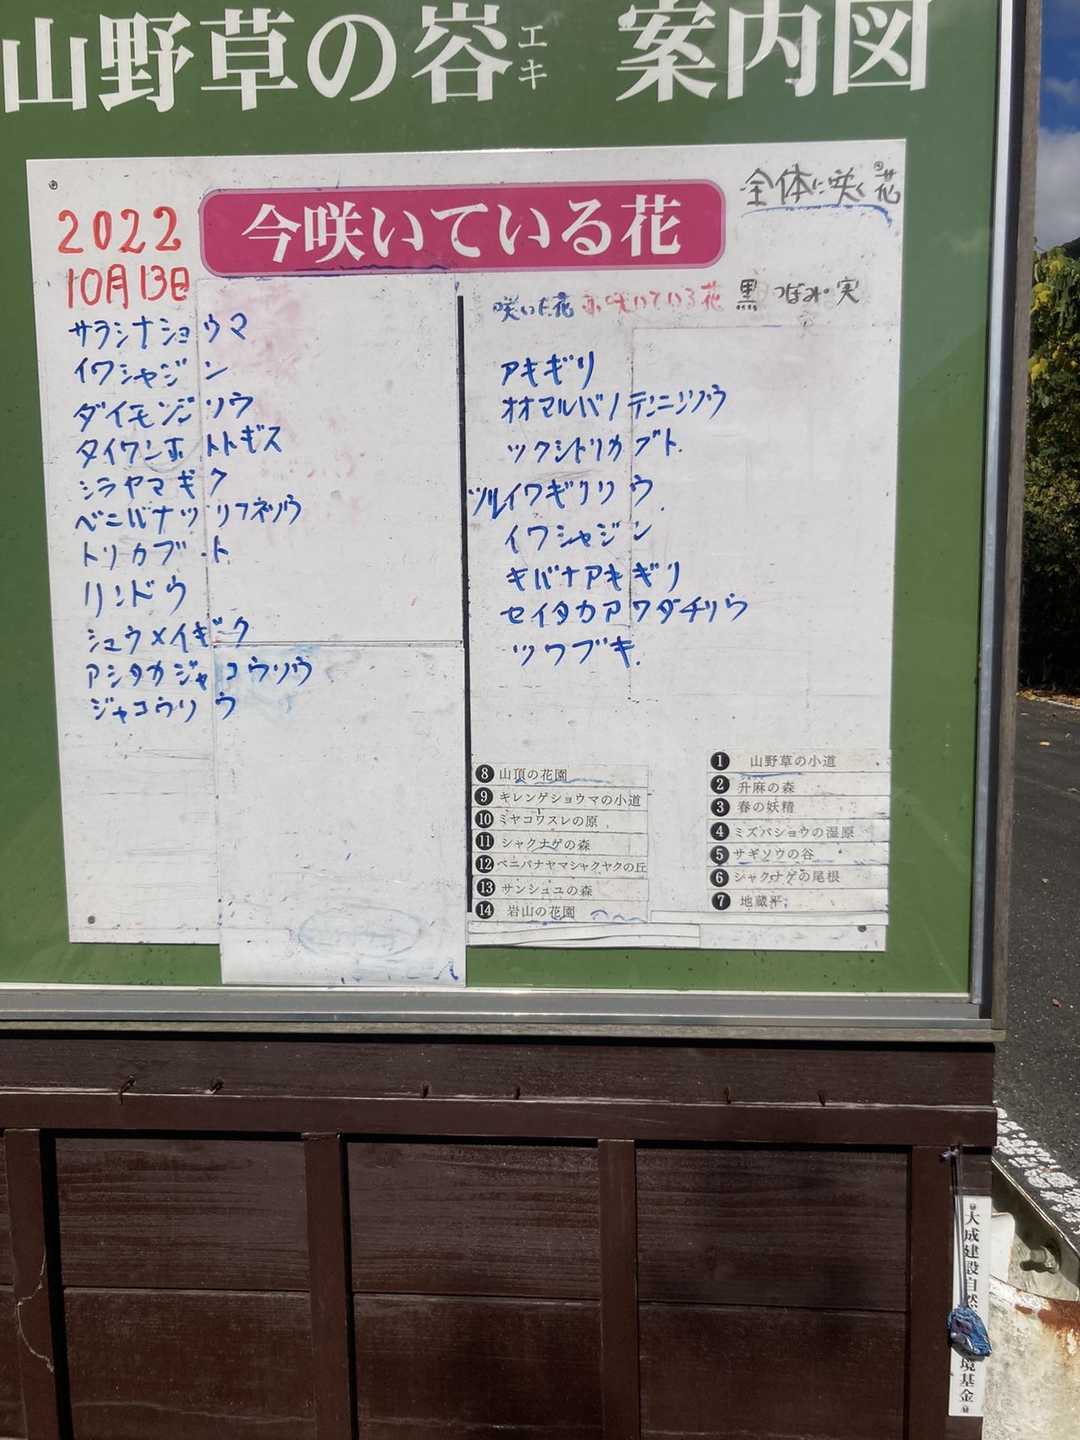 山野草の峪 エキ 案内図
2022
10月13日
今咲いている花
全体に咲く花
サラシナショウマ
イワシャジン
ダイモンジソウ
タイワンホトトギス
シラヤマギク
ベニバナツリフネソウ
トリカブト
リンドウ
シュウメイギク
アシタカジャコウソウ
ジャコウソウ
咲いた花 赤 咲いている花 黒 つぼみ・実
アキギリ
オオマルバノテンニンソウ
ツクシトリカブト
ツルイワギリソウ
イワシャジン
キバナアキギリ
セイタカアワダチソウ
ツワブキ
8 山頂の花園
9 キレンゲショウマの小道
10 ミヤコワスレの原
11 シャクナゲの森
12 ベニバナヤマシャクヤクの丘
13 サンシュユの森
14 岩山の花園
1 山野草の小道
2 升麻の森
3 春の妖精
4 ミズバショウの湿原
5 サギソウの谷
6 シャクナゲの尾根
7 地蔵平
大成建設自然
境基金